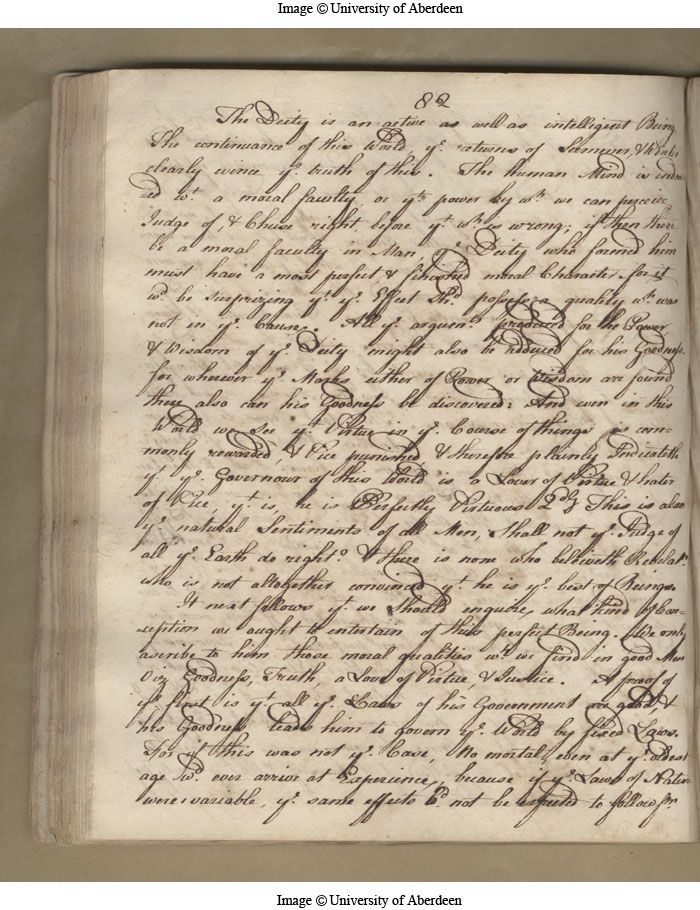 Image © University of Aberdeen
82
The Deity is an active as well as intelligent Being.
The continuance of this World, yͤ. returns of Summer, & Winter
clearly evince yͤ. truth of this. The human Mind is endow
=ed wͭ. a moral faculty or yͭ. power by wͪ. we can perceive,
Judge of, & Chuse right before yͭ. wͪ. is wrong; if then there
be a moral faculty in Man, yͤ. Deity who formed him
must have a most perfect, & finished moral Character for it
wͩ. be surprizing yͭ. yͤ. Effect Shͩ. possess a quality wͪ. was
not in yͤ. Cause. All yͤ. argumᵗˢ. produced for the Power,
& Wisdom of yͤ. Deity might also be adduced for his Goodness.
for wherever yͤ. Marks either of Power or Wisdom are found
there also can his Goodness be discovered: And even in this
World we See yͭ. Virtue in yͤ. Course of things is com-
monly rewarded, & Vice punished, & therefore plainly Indicateth
yͭ. yͤ. Governour of this World is a Lover of Virtue & hater
of Vice, yͭ. is, he is Perfectly Virtuous 2ᵈˡʸ This is also
yͤ. natural Sentiments of all Men, Shall not yͤ. Judge of
all yͤ. Earth do right? & there is none who beleiveth Revelatⁿ.
who is not altogether convinced yͭ. he is yͤ. best of Beings.
It next follows yͭ. we Should enquire, what kind of Con-
ception we ought to entertain of this perfect Being. We only
ascribe to him those moral qualities wͪ. we find in good Men
Viz Goodness, Truth, a Love of Virtue, & Justice. A proof of
yͤ. first is yͭ. all yͤ. Laws of his Government are good, &
his Goodness leads him to govern yͤ. World by fixed Laws.
For if this was not yͤ. Case, No mortal, even at yͤ. oldest
age Wͩ. ever arrive at Experience, because if yͤ. Laws of Nature
were variable, yͤ. same effects Cͩ. not be expected to follow fᵐ
Image © University of Aberdeen